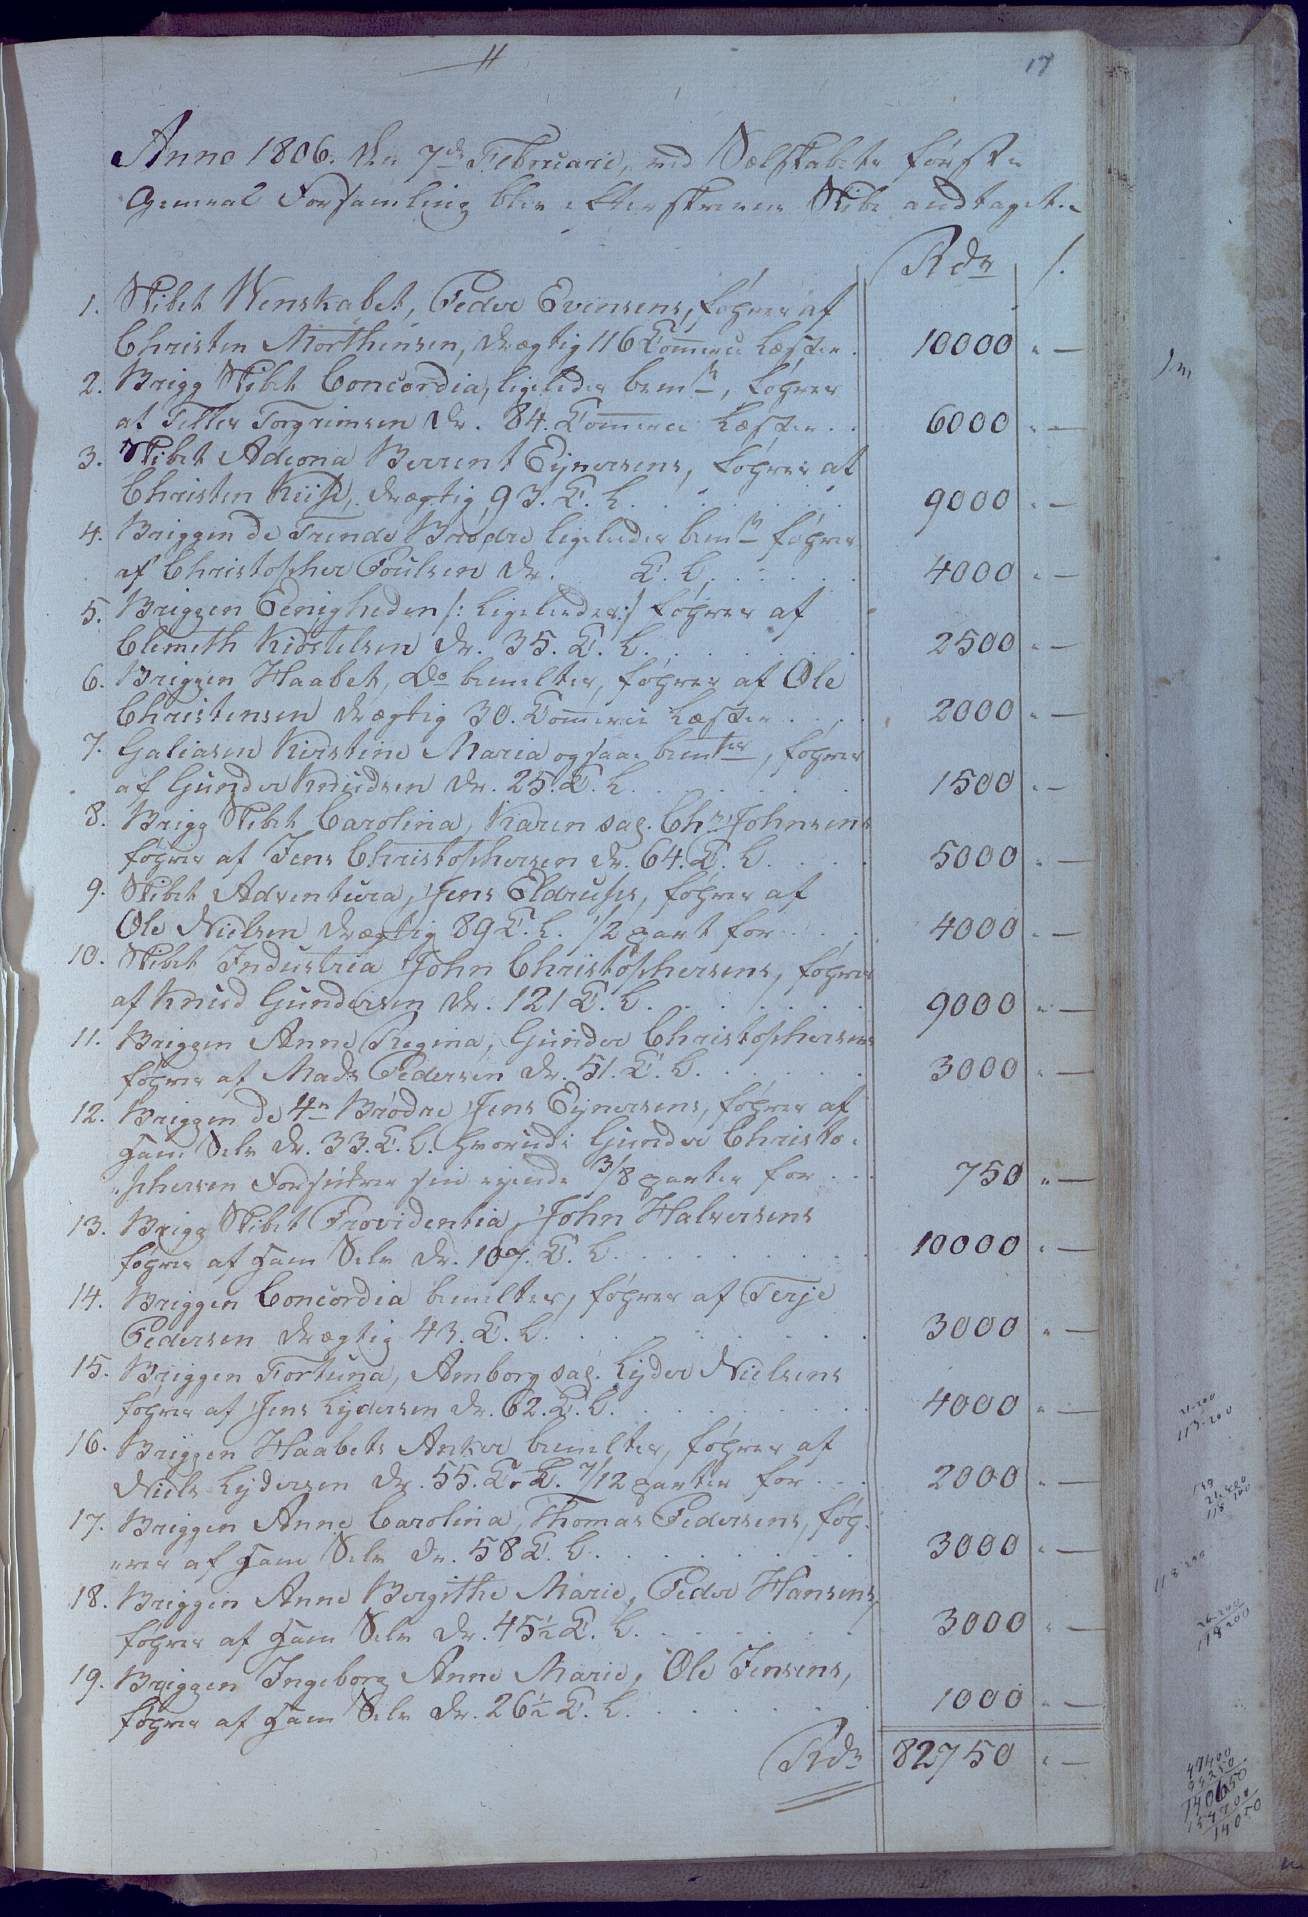 17
Anno 1806. den 7de Februarii, ved Selskabets første
General Forsamling blev efterskrevne Skibe andtaget:
Rdr ß.
1. Skibet Wenskabet, Peder Evensens, føhres af
Christen Morthensen, drægtig 116 Commerce Læster. 10000 " —
2. Brigg Skibet Concordia, ligeledes bemte, føhres
af Tellef Torgrimsen dr. 84. Commerce Læster. . 6000 " —
3. Skibet Adeona Berrent Eÿnersens, føhres af
Christen drægtig 93. C. L. . . . . 9000 " —
4. Briggen de Trende Brødre ligeledes bemte føhres
af Christopher Poulsen dr. C. L. . . . . 4000 " —
5. Briggen Eenigheden /: ligeledes :/ føhres af
Clemeth Kiostelsen dr. 35. C. L. . . . . 2500 " —
6. Briggen Haabet, Do bemelter, føhres af Ole
Christensen drægtig 30. Commerce Læster . . . 2000 " —
7. Galiasen Kirstine Maria ogsaa bemter, føhres
af Gunder Knudsen dr. 25. C. L. . . . . 1500 " —
8. Brigg Skibet Carolina, Karen sal. Chr. Johnsens
føhres af Jens Christophersen dr. 64. C. L. . . . 5000 " —
9. Skibet Adventura, Jens Eldrups, føhres af
Ole Nielsen drægtig 89 C. L. 1/2 part for . . . 4000 " —
10. Skibet Industria John Christophersens, føhres
af Knud Gundersen dr. 121 C. L. . . . . 9000 " —
11. Briggen Anne Regina, Gunder Christophersens
føhres af Mads Pedersen dr. 51. C. L. . . . . 3000 " —
12. Briggen de 4re Brødre Jens Eÿnersens, føhres af
ham Selv dr. 33. C. L. hvorudi Gunder Christo-
phersen Forsikrer sin eiende 3/8 parter for . . . 750 " —
13. Brigg Skibet Providentia, John Halversens
føhres af ham Selv dr. 107. C. L. . . . . 10000 " —
14. Briggen Concordia bemelter, føhres af Terje
Pedersen drægtig 43. C. L. . . . . 3000 " —
15. Briggen Fortuna, Amborg sal. Lÿder Nielsens
føhres af Jens Lÿdersen dr. 62. C. L. . . . . 4000 " —
16. Briggen Haabets Anker bemelter, føhres af
Niels Lÿdersen dr. 55. C. L. 7/12 parter for . . . 2000 " —
17. Briggen Anne Carolina, Thomas Pedersens, føh-
res af ham Selv dr. 58 C. L. . . . . 3000 " —
18. Briggen Anne Bergithe Marie, Peder Hansens,
føhres af ham Selv dr. 45 1/2 C. L. . . . . 3000 " —
19. Briggen Ingeborg Anne Marie, Ole Jensens,
føhres af ham Selv dr. 26 1/2 C. L. . . . . 1000 " —
Rdr 82750 " —